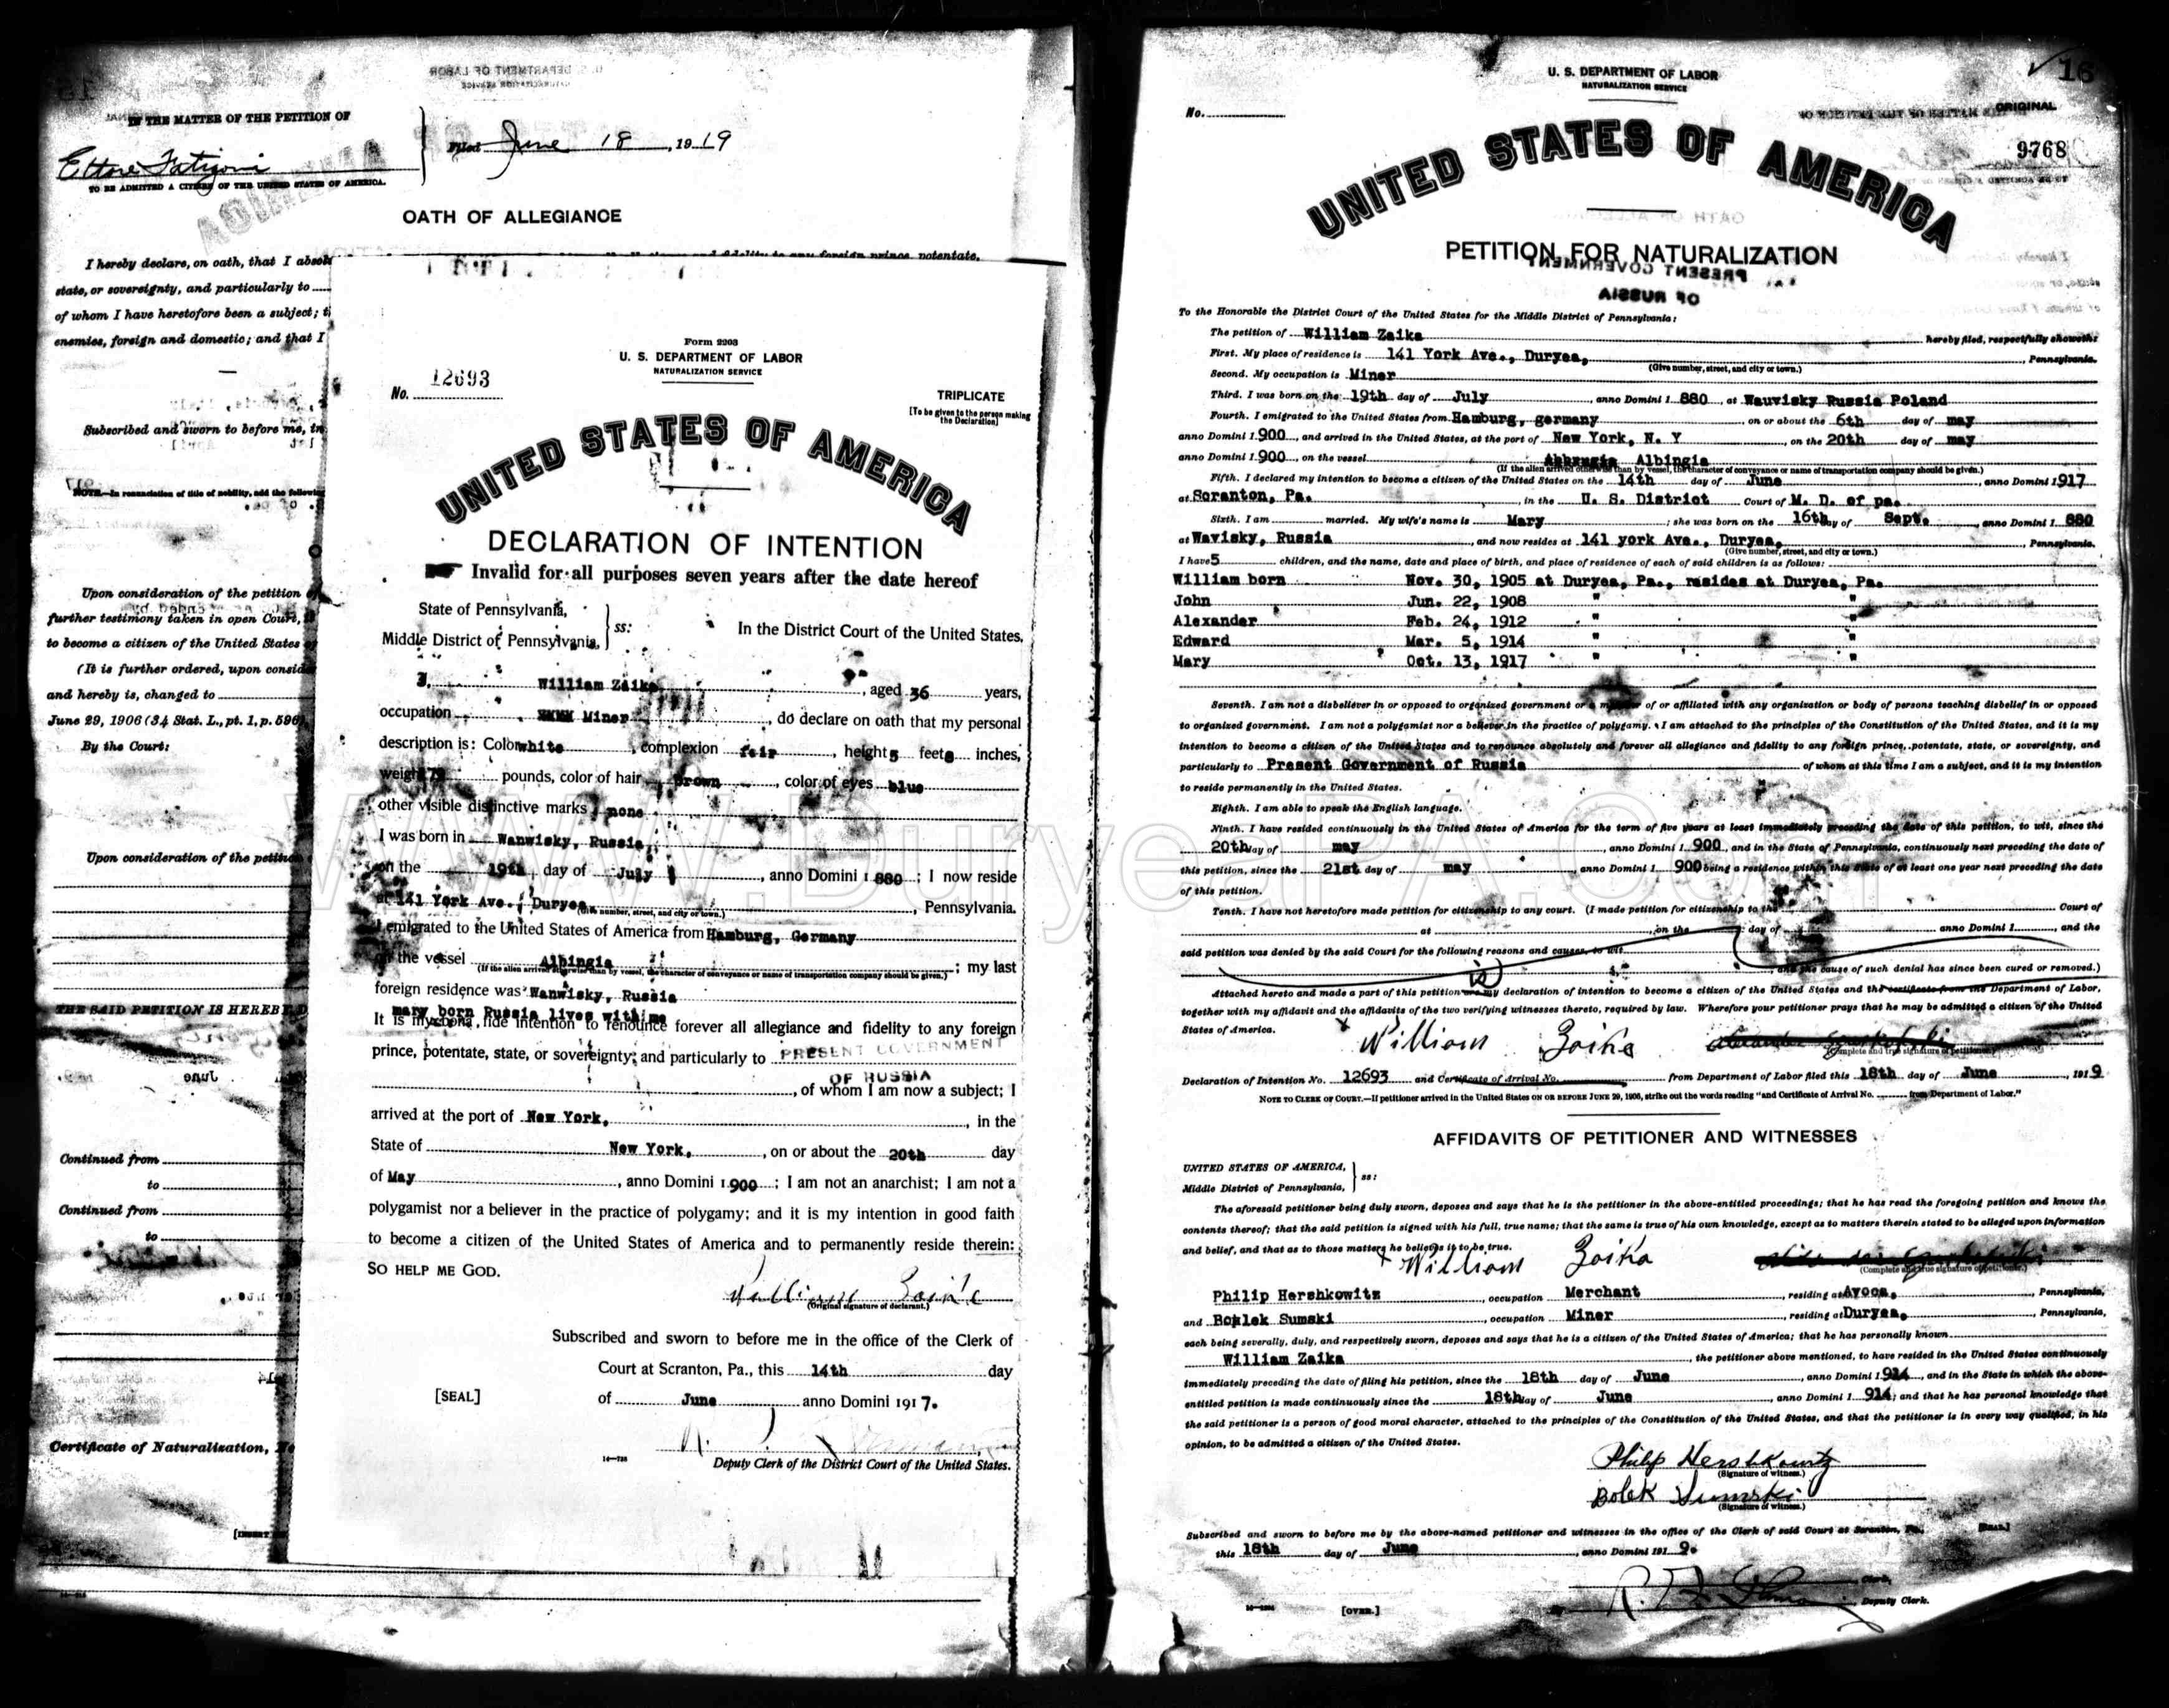 U. S. DEPARTMENT OF LABOR
NATURALIZATION SERVICE
IN THE MATTER OF THE PETITION OF
Ettore
TO BE ADMITTED A CITIZEN OF THE UNITED STATES OF AMERICA.
Filed June 18, 1919
OATH OF ALLEGIANCE
I hereby declare, on oath, that I
any foreign prince, potentate,
state, or sovereignty, and particularly to
of whom I have heretofore been a subject;
enemies, foreign and domestic; and that I
Subscribed and sworn to before me, in
NOTE.—In renunciation of title of nobility, add the following
Upon consideration of the petition
further testimony taken in open Court,
to become a citizen of the United States
(It is further ordered, upon
and hereby is, changed to
June 29, 1906 (34 Stat. L., pt. 1, p. 596
By the Court:
Upon consideration of the
THE SAID PETITION IS
Continued from
to
Continued from
to
Certificate of Naturalization,
Form 2203
U. S. DEPARTMENT OF LABOR
NATURALIZATION SERVICE
No. 12693
TRIPLICATE
[To be given to the person making
the Declaration]
UNITED STATES OF AMERICA
DECLARATION OF INTENTION
Invalid for all purposes seven years after the date hereof
State of Pennsylvania,
Middle District of Pennsylvania, ss:
In the District Court of the United States.
I, William Zaika, aged 36 years,
occupation Miner, do declare on oath that my personal
description is: Color white, complexion fair, height 5 feet inches,
weight pounds, color of hair brown, color of eyes blue
other visible distinctive marks none
I was born in Wanwisky, Russia,
on the 19th day of July, anno Domini 1 880; I now reside
at 141 York Ave., Duryea, Pennsylvania.
(Give number, street, and city or town.)
I emigrated to the United States of America from Hamburg, Germany
on the vessel Albingia; my last
(If the alien arrived otherwise than by vessel, the character of conveyance or name of transportation company should be given.)
foreign residence was Wanwisky, Russia
mary born Russia lives with me
It is my bona fide intention to renounce forever all allegiance and fidelity to any foreign
prince, potentate, state, or sovereignty, and particularly to PRESENT GOVERNMENT
OF RUSSIA, of whom I am now a subject; I
arrived at the port of New York, in the
State of New York, on or about the 20th day
of May, anno Domini 1 900; I am not an anarchist; I am not a
polygamist nor a believer in the practice of polygamy; and it is my intention in good faith
to become a citizen of the United States of America and to permanently reside therein:
SO HELP ME GOD.
William Zaika
(Original signature of declarant.)
Subscribed and sworn to before me in the office of the Clerk of
Court at Scranton, Pa., this 14th day
[SEAL] of June anno Domini 1917.
Deputy Clerk of the District Court of the United States.
U. S. DEPARTMENT OF LABOR
NATURALIZATION SERVICE
16
No.
ORIGINAL
9768
UNITED STATES OF AMERICA
PETITION FOR NATURALIZATION
PRESENT GOVERNMENT
OF RUSSIA
To the Honorable the District Court of the United States for the Middle District of Pennsylvania:
The petition of William Zaika hereby filed, respectfully showeth:
First. My place of residence is 141 York Ave., Duryea, Pennsylvania.
(Give number, street, and city or town.)
Second. My occupation is Miner
Third. I was born on the 19th day of July, anno Domini 1 880, at Wauvisky Russia Poland
Fourth. I emigrated to the United States from Hamburg, germany on or about the 6th day of may
anno Domini 1 900, and arrived in the United States, at the port of New York, N. Y, on the 20th day of may
anno Domini 1 900, on the vessel Albingia
(If the alien arrived otherwise than by vessel, the character of conveyance or name of transportation company should be given.)
Fifth. I declared my intention to become a citizen of the United States on the 14th day of June, anno Domini 1917
at Scranton, Pa., in the U. S. District Court of M. D. of pa.
Sixth. I am married. My wife's name is Mary; she was born on the 16th day of Sept., anno Domini 1 880
at Wavisky, Russia, and now resides at 141 york Ave., Duryea, Pennsylvania.
(Give number, street, and city or town.)
I have 5 children, and the name, date and place of birth, and place of residence of each of said children is as follows:
William born Nov. 30, 1905 at Duryea, Pa., resides at Duryea, Pa.
John Jun. 22, 1908 " "
Alexander Feb. 24, 1912 " "
Edward Mar. 5, 1914 " "
Mary Oct. 13, 1917 " "
Seventh. I am not a disbeliever in or opposed to organized government or a member of or affiliated with any organization or body of persons teaching disbelief in or opposed
to organized government. I am not a polygamist nor a believer in the practice of polygamy. I am attached to the principles of the Constitution of the United States, and it is my
intention to become a citizen of the United States and to renounce absolutely and forever all allegiance and fidelity to any foreign prince, potentate, state, or sovereignty, and
particularly to Present Government of Russia of whom at this time I am a subject, and it is my intention
to reside permanently in the United States.
Eighth. I am able to speak the English language.
Ninth. I have resided continuously in the United States of America for the term of five years at least immediately preceding the date of this petition, to wit, since the
20th day of may, anno Domini 1 900, and in the State of Pennsylvania, continuously next preceding the date of
this petition, since the 21st day of may, anno Domini 1 900 being a residence within this State of at least one year next preceding the date
of this petition.
Tenth. I have not heretofore made petition for citizenship to any court. (I made petition for citizenship to the Court of
at, on the day of anno Domini 1, and the
said petition was denied by the said Court for the following reasons and causes, to wit
, and the cause of such denial has since been cured or removed.)
is
Attached hereto and made a part of this petition are my declaration of intention to become a citizen of the United States and the certificate from the Department of Labor,
together with my affidavit and the affidavits of the two verifying witnesses thereto, required by law. Wherefore your petitioner prays that he may be admitted a citizen of the United
States of America.
x William Zaika
(Complete and true signature of petitioner.)
Declaration of Intention No. 12693 and Certificate of Arrival No. from Department of Labor filed this 18th day of June, 1919
NOTE TO CLERK OF COURT.—If petitioner arrived in the United States ON OR BEFORE JUNE 29, 1906, strike out the words reading "and Certificate of Arrival No. from Department of Labor."
AFFIDAVITS OF PETITIONER AND WITNESSES
UNITED STATES OF AMERICA,
Middle District of Pennsylvania, ss:
The aforesaid petitioner being duly sworn, deposes and says that he is the petitioner in the above-entitled proceedings; that he has read the foregoing petition and knows the
contents thereof; that the said petition is signed with his full, true name; that the same is true of his own knowledge, except as to matters therein stated to be alleged upon information
and belief, and that as to those matters he believes it to be true.
x William Zaika
(Complete and true signature of petitioner.)
Philip Hershkowitz, occupation Merchant, residing at Avoca, Pennsylvania,
and Bolek Sumski, occupation Miner, residing at Duryea, Pennsylvania,
each being severally, duly, and respectively sworn, deposes and says that he is a citizen of the United States of America; that he has personally known
William Zaika, the petitioner above mentioned, to have resided in the United States continuously
immediately preceding the date of filing his petition, since the 18th day of June, anno Domini 1 914, and in the State in which the above-
entitled petition is made continuously since the 18th day of June, anno Domini 1 914; and that he has personal knowledge that
the said petitioner is a person of good moral character, attached to the principles of the Constitution of the United States, and that the petitioner is in every way qualified, in his
opinion, to be admitted a citizen of the United States.
Philip Hershkowitz
(Signature of witness.)
Bolek Sumski
(Signature of witness.)
Subscribed and sworn to before me by the above-named petitioner and witnesses in the office of the Clerk of said Court at Scranton, Pa. [SEAL]
this 18th day of June, anno Domini 1919.
Clerk.
By Deputy Clerk.
[OVER.]
www.DuryeaPA.Com